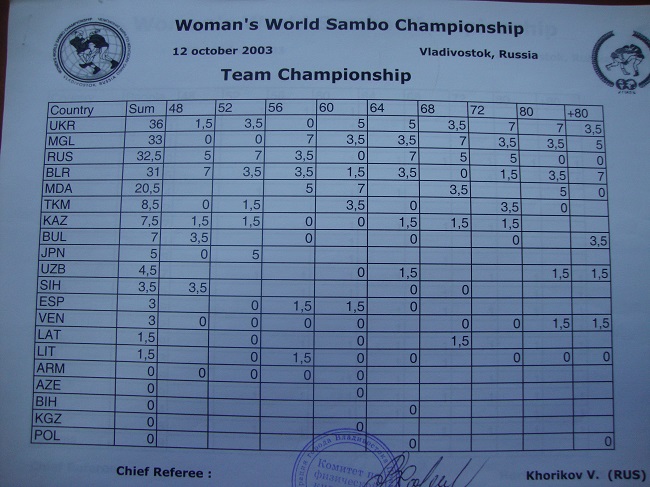 Woman's World Sambo Championship
12 october 2003 Vladivostok, Russia
Team Championship
Country Sum 48 52 56 60 64 68 72 80 +80
UKR 36 1,5 3,5 0 5 5 3,5 7 7 3,5
MGL 33 0 0 7 3,5 3,5 7 3,5 3,5 5
RUS 32,5 5 7 3,5 0 7 5 5 0 0
BLR 31 7 3,5 3,5 1,5 3,5 0 1,5 3,5 7
MDA 20,5 5 7 3,5 5 0
TKM 8,5 0 1,5 3,5 0 3,5 0
KAZ 7,5 1,5 1,5 0 0 1,5 1,5 1,5
BUL 7 3,5 0 0 0 3,5
JPN 5 0 5
UZB 4,5 0 1,5 1,5 1,5
SIH 3,5 3,5 0 0
ESP 3 0 1,5 1,5 0
VEN 3 0 0 0 0 0 0 1,5 1,5
LAT 1,5 0 0 1,5
LIT 1,5 0 1,5 0 0 0 0 0
ARM 0 0 0 0 0
AZE 0 0
BIH 0 0
KGZ 0 0
POL 0 0 0
Chief Referee : Khorikov V. (RUS)